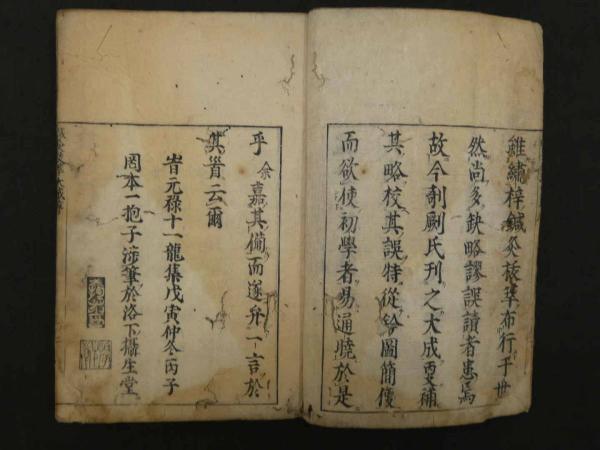 雖繡梓鍼灸抜萃布行于世
然尚多缺略謬誤讀者患焉
故今剞劂氏刊之大成更補
其略校其誤特從繪圖簡優
而欲使初學者易通曉於是
乎余嘉其備而遂弁一言於
其首云爾
旹元禄十一龍集戊寅仲冬丙子
岡本一抱子渉筆於洛下攝生堂